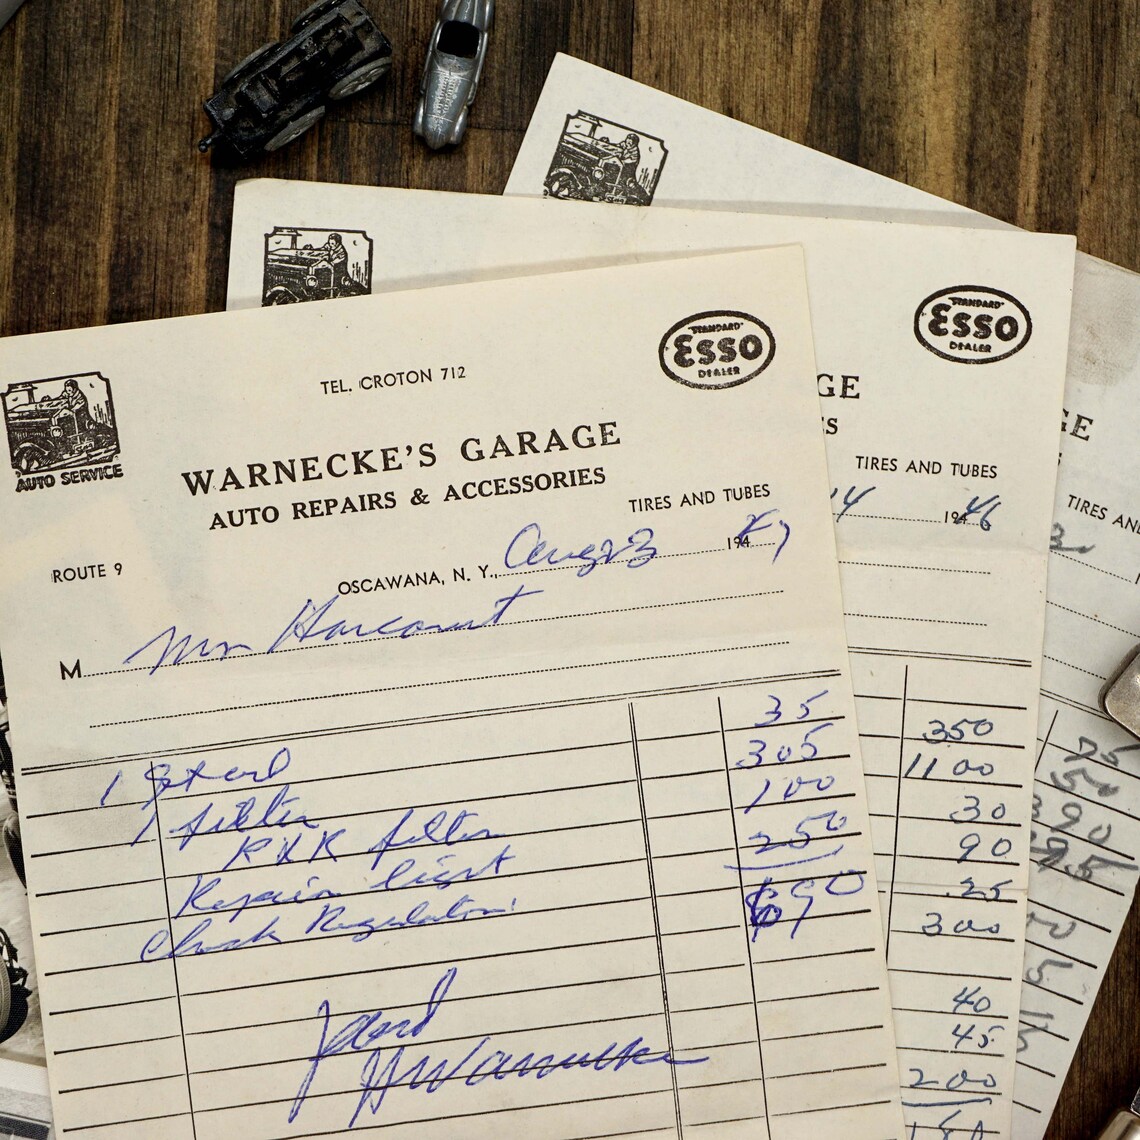 STANDARD
ESSO
DEALER
TEL. CROTON 712
AUTO SERVICE
WARNECKE'S GARAGE
AUTO REPAIRS & ACCESSORIES
TIRES AND TUBES
ROUTE 9
OSCAWANA, N. Y., Aug 23 194 47
M Mrs Harcourt
35
1 305
1 filter 100
filter 250
Repair light $690
Check Regulator
Paid
HWarnecke
STANDARD
ESSO
DEALER
GE
ES
TIRES AND TUBES
14 194 46
350
11 00
30
90
25
300
40
45
200
GE
TIRES AN
75
50
390